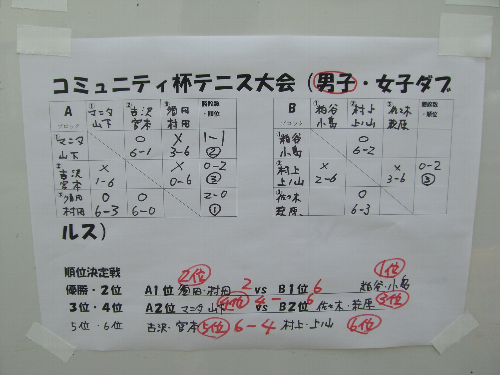 コミュニティ杯テニス大会（男子・女子ダブ
A ブロック ①マニタ 山下 ②吉沢 宮本 ③須田 村田 勝敗数・順位
①マニタ 山下 0 6-1 × 3-6 1-1 ②
②吉沢 宮本 × 1-6 × 0-6 0-2 ③
③須田 村田 0 6-3 0 6-0 2-0 ①
B ブロック ①粕谷 小島 ②村上 上ノ山 ③佐々木 萩原 勝敗数・順位
①粕谷 小島 0 6-2
②村上 上ノ山 × 2-6 × 3-6 0-2 ③
③佐々木 萩原 0 6-3
ルス）
順位決定戦 2位 1位
優勝・2位 A1位 須田・村田 2 vs B1位 6 粕谷・小島
3位・4位 A2位 マニタ 山下 4位 4-6 B2位 佐々木・萩原 3位
5位・6位 古沢・宮本 5位 6-4 村上・上ノ山 6位